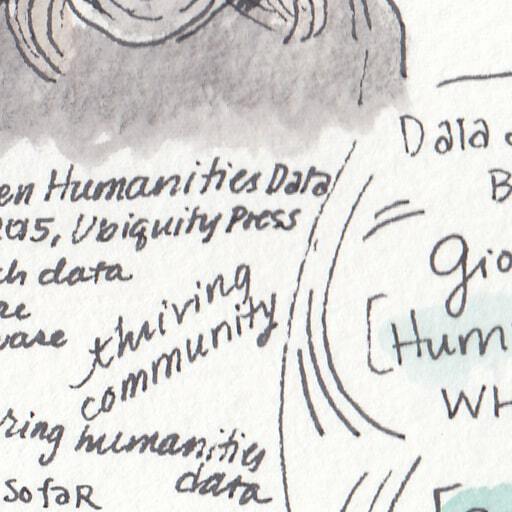 en Humanities Data
2015, Ubiquity Press
ch data
thriving
community
ring humanities
data
so far
Data
B
Gio
[Hum
WH